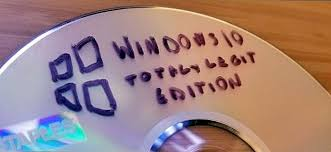 WINDOWS 10
TOTALY LEGIT
EDITION
STAPLES